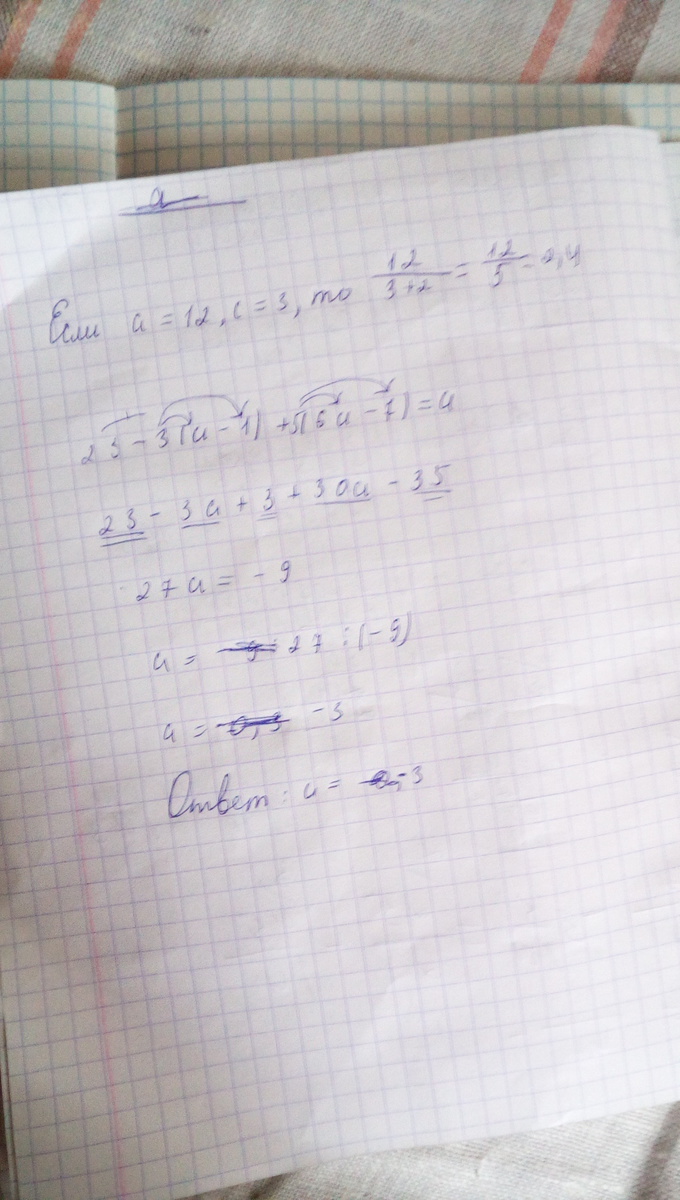 Если a = 12, c = 3, то 12/(3+2) = 12/5 = 2,4
23 - 3(a - 1) + 5(6a - 7) = a
23 - 3a + 3 + 30a - 35
27a = - 9
a = 27 : (-9)
a = -3
Ответ: a = -3